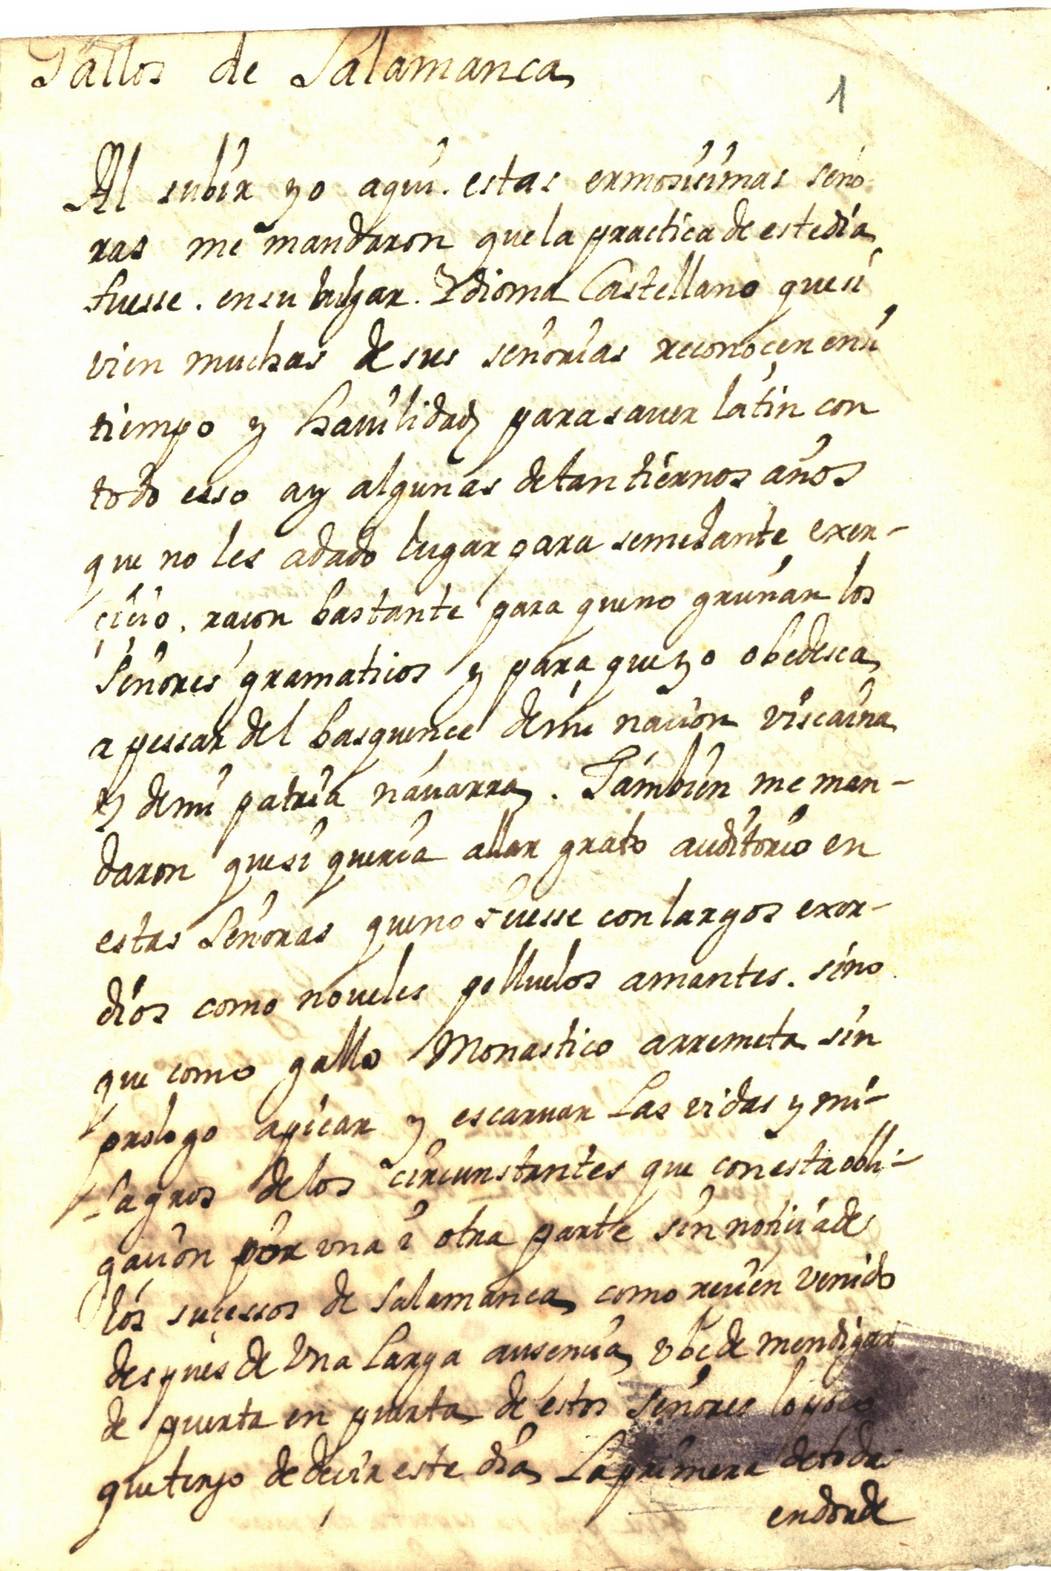 Gallos de Salamanca
1
Al subir yo aqui. estas ermosisimas seño-
ras me mandaron que la practica de este dia
fuesse. en su bulgar. Ydioma Castellano que si
vien muchas de sus señorias reconocen en si
tiempo y havilidad para saver latin con
todo esso ay algunas de tan tiernos años
que no les a dado lugar para semejante exer-
cicio. racon bastante para que no gruñan los
Señores gramaticos y para que yo obedesca
a pessar del basquence de mi nacion viscaina
y de mi patria navarra. Tambien me man-
daron que si queria allar grato auditorio en
estas Señoras que no fuesse con largos exor-
dios como noveles polluelos amantes. sino
que como gallo Monastico arremeta sin
prologo a picar y escarvar las vidas y mi-
lagros de los circunstantes que con esta obli-
gacion por una i otra parte sin noticia de
los sucessos de Salamanca como recien venido
despues de una larga ausencia ube de mendigar
de puerta en puerta de estos señores lo poco
que tengo de decir este dia La primera de toda
en donde